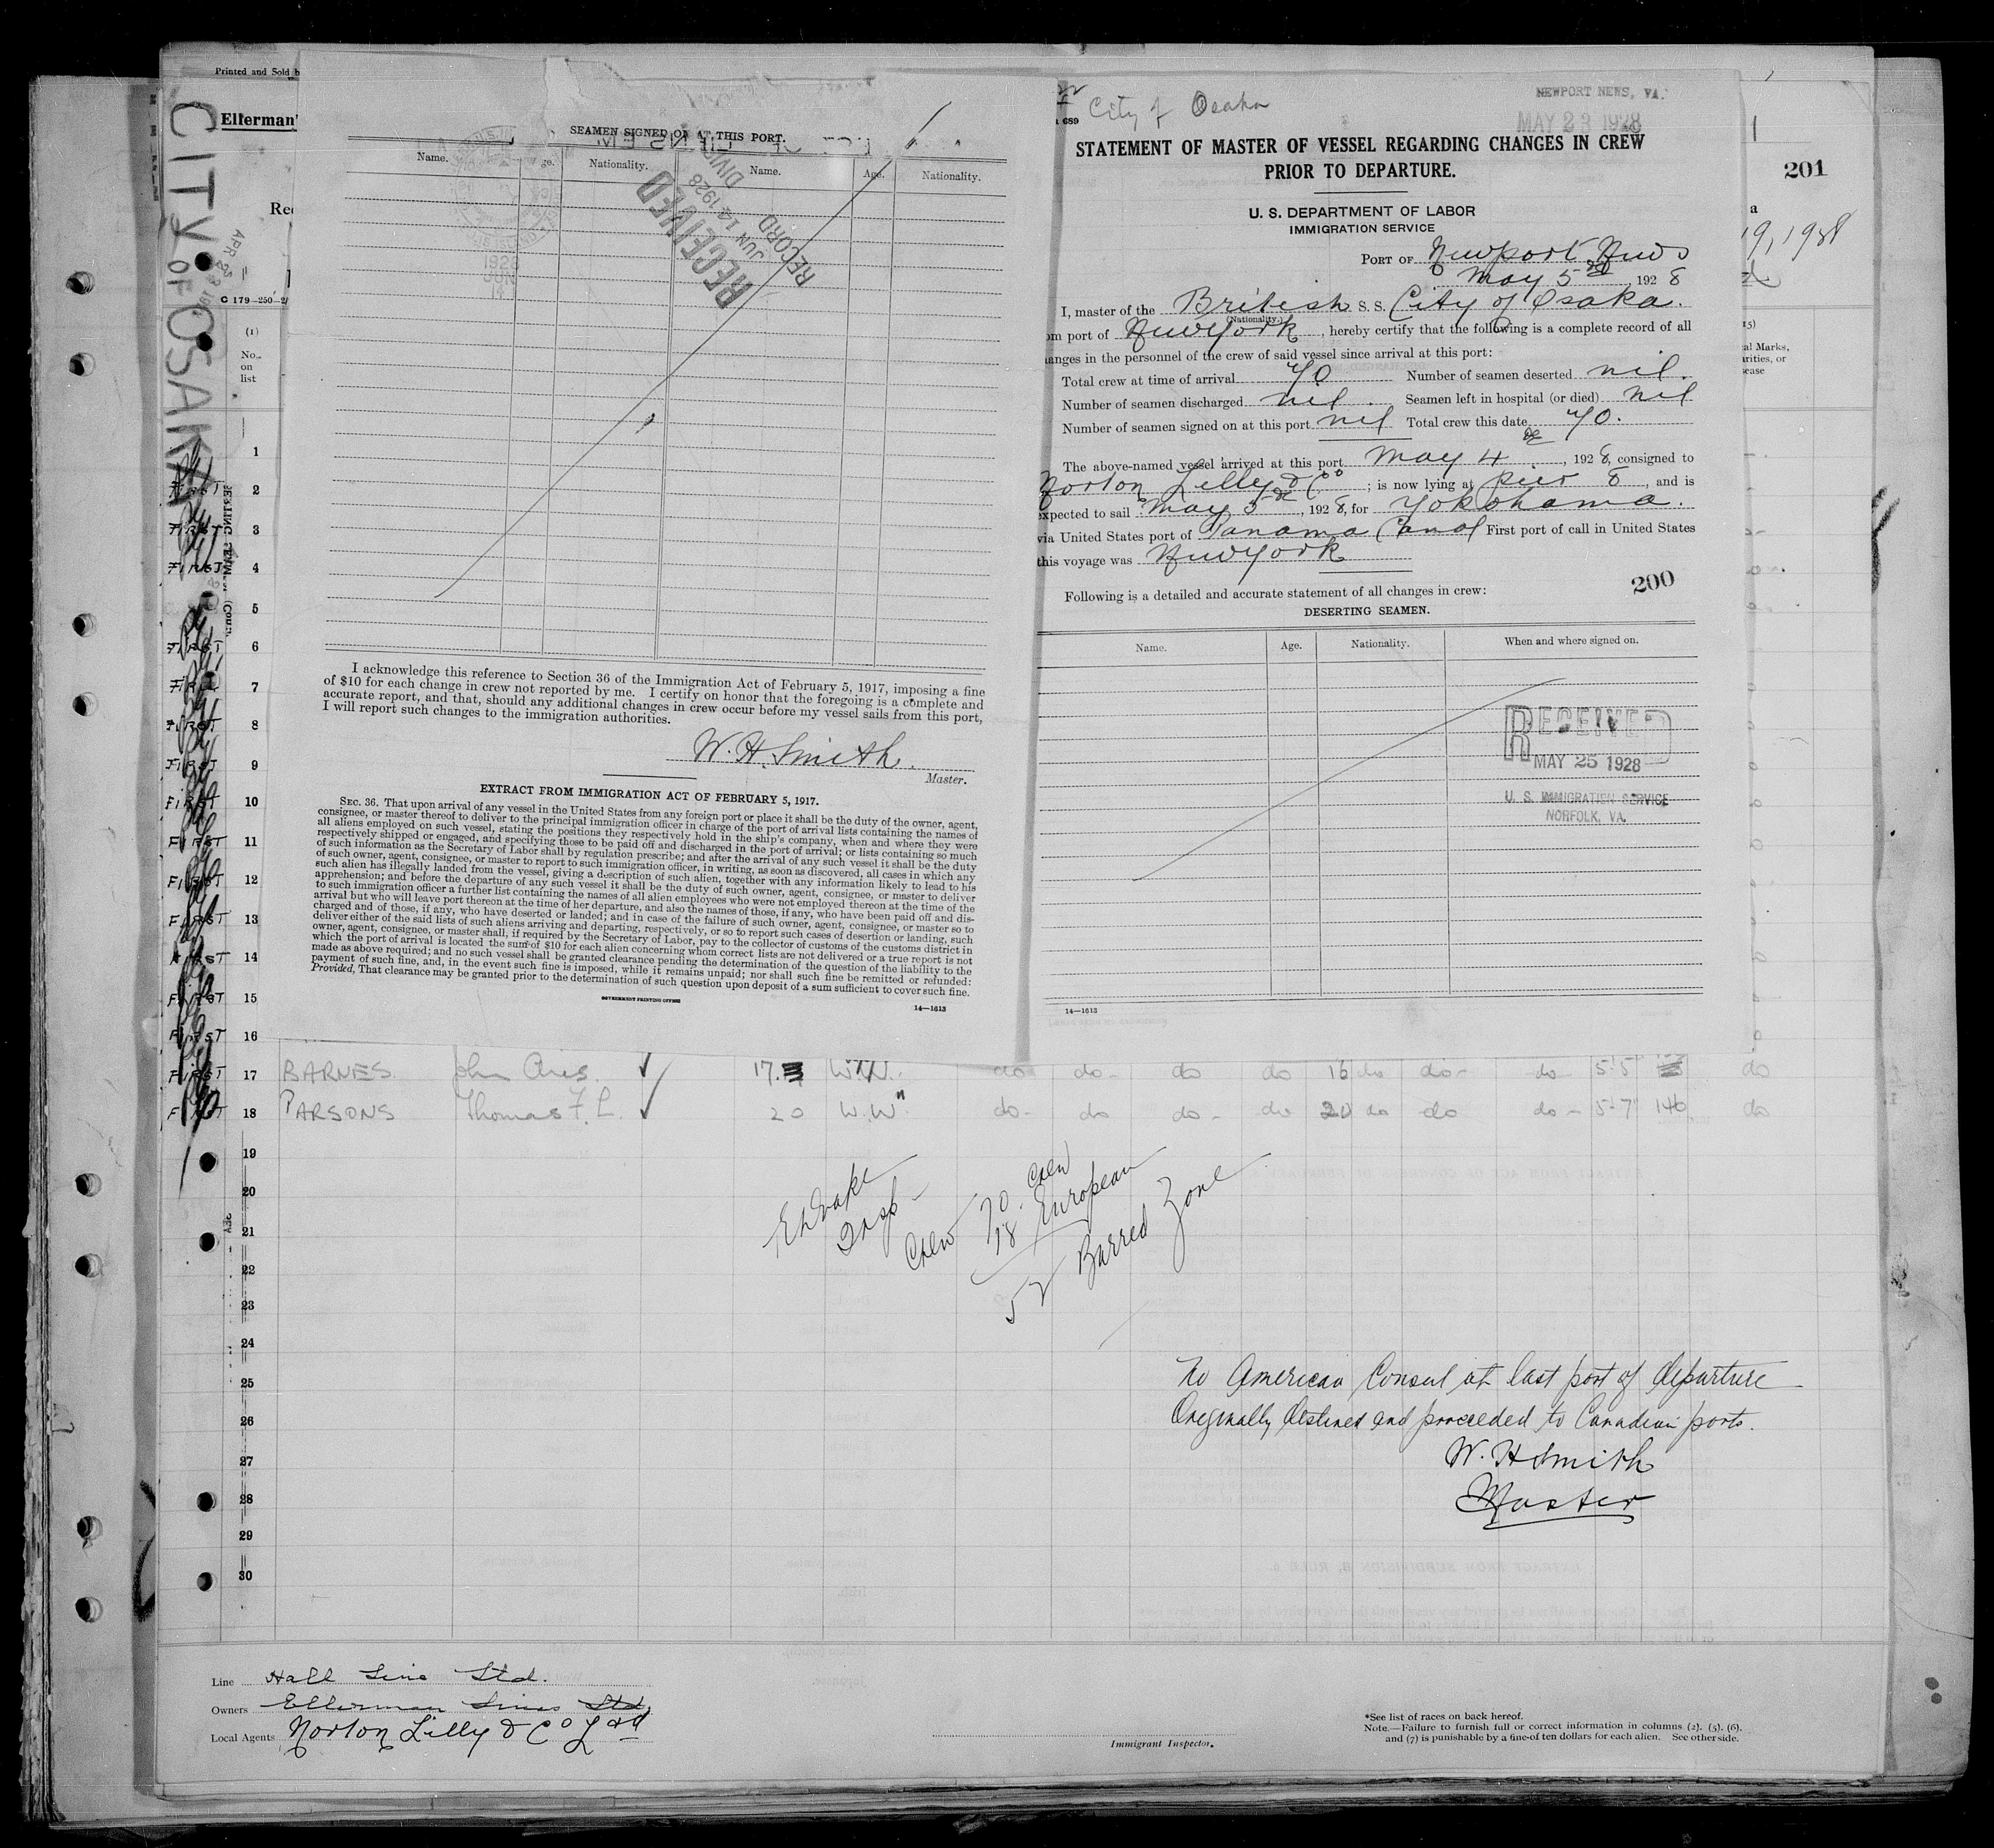 Printed and Sold b
Ellerman's
CITY OF OSAKA
C 179-250-2/
(1)
No.
on
list
SEAMEN SIGNED ON AT THIS PORT.
Name. Age. Nationality. Name. Age. Nationality.
RECEIVED
JUN 14 1928
RECORD
I acknowledge this reference to Section 36 of the Immigration Act of February 5, 1917, imposing a fine
of $10 for each change in crew not reported by me. I certify on honor that the foregoing is a complete and
accurate report, and that, should any additional changes in crew occur before my vessel sails from this port,
I will report such changes to the immigration authorities.
W. H. Smith.
Master.
EXTRACT FROM IMMIGRATION ACT OF FEBRUARY 5, 1917.
SEC. 36. That upon arrival of any vessel in the United States from any foreign port or place it shall be the duty of the owner, agent,
consignee, or master thereof to deliver to the principal immigration officer in charge of the port of arrival lists containing the names of
all aliens employed on such vessel, stating the positions they respectively hold in the ship's company, when and where they were
respectively shipped or engaged, and specifying those to be paid off and discharged in the port of arrival; or lists containing so much
of such information as the Secretary of Labor shall by regulation prescribe; and after the arrival of any such vessel it shall be the duty
of such owner, agent, consignee, or master to report to such immigration officer, in writing, as soon as discovered, all cases in which any
such alien has illegally landed from the vessel, giving a description of such alien, together with any information likely to lead to his
apprehension; and before the departure of any such vessel it shall be the duty of such owner, agent, consignee, or master to deliver
to such immigration officer a further list containing the names of all alien employees who were not employed thereon at the time of the
arrival but who will leave port thereon at the time of her departure, and also the names of those, if any, who have been paid off and dis-
charged and of those, if any, who have deserted or landed; and in case of the failure of such owner, agent, consignee, or master so to
deliver either of the said lists of such aliens arriving and departing, respectively, or so to report such cases of desertion or landing, such
owner, agent, consignee, or master shall, if required by the Secretary of Labor, pay to the collector of customs of the customs district in
which the port of arrival is located the sum of $10 for each alien concerning whom correct lists are not delivered or a true report is not
made as above required; and no such vessel shall be granted clearance pending the determination of the question of the liability to the
payment of such fine, and, in the event such fine is imposed, while it remains unpaid; nor shall such fine be remitted or refunded:
Provided, That clearance may be granted prior to the determination of such question upon deposit of a sum sufficient to cover such fine.
GOVERNMENT PRINTING OFFICE
14—1613
City of Osaka
NEWPORT NEWS, VA.
MAY 23 1928
689
STATEMENT OF MASTER OF VESSEL REGARDING CHANGES IN CREW
PRIOR TO DEPARTURE.
U. S. DEPARTMENT OF LABOR
IMMIGRATION SERVICE
PORT OF Newport News
May 5th 1928
I, master of the British S. S. City of Osaka.
(Nationality.)
om port of New York, hereby certify that the following is a complete record of all
anges in the personnel of the crew of said vessel since arrival at this port:
Total crew at time of arrival 70 Number of seamen deserted nil.
Number of seamen discharged nil. Seamen left in hospital (or died) nil
Number of seamen signed on at this port nil Total crew this date 70.
The above-named vessel arrived at this port May 4th, 1928, consigned to
Norton Lilly & Co; is now lying at Pier 8, and is
expected to sail May 5th, 1928, for Yokohama.
via United States port of Panama Canal First port of call in United States
this voyage was New York
200
Following is a detailed and accurate statement of all changes in crew:
DESERTING SEAMEN.
Name. Age. Nationality. When and where signed on.
RECEIVED
MAY 25 1928
U. S. IMMIGRATION SERVICE
NORFOLK, VA.
14—1613
201
19, 1928
1
FIRST 2
FIRST 3
FIRST 4
5
FIRST 6
FIRST 7
FIRST 8
FIRST 9
FIRST 10
FIRST 11
FIRST 12
FIRST 13
FIRST 14
FIRST 15
FIRST 16
FIRST 17 BARNES John Chas. 17 W.W. do do do do 16 do do do 5-5 do
FIRST 18 PARSONS Thomas F. L. 20 W.W" do do do do 20 do do do 5-7 140 do
19
20
21
22
23
24
25
26
27
28
29
30
EH Drake
Insp
Crew 70. Crew
18 European
52 Barred Zone
No American Consul at last port of departure
Originally destined and proceeded to Canadian ports.
W. H Smith
Master
Line Hall Line Ltd.
Owners Ellerman Lines Ltd,
Local Agents Norton Lilly & Co Ltd
Immigrant Inspector.
*See list of races on back hereof.
Note.—Failure to furnish full or correct information in columns (2), (5), (6),
and (7) is punishable by a fine of ten dollars for each alien. See other side.